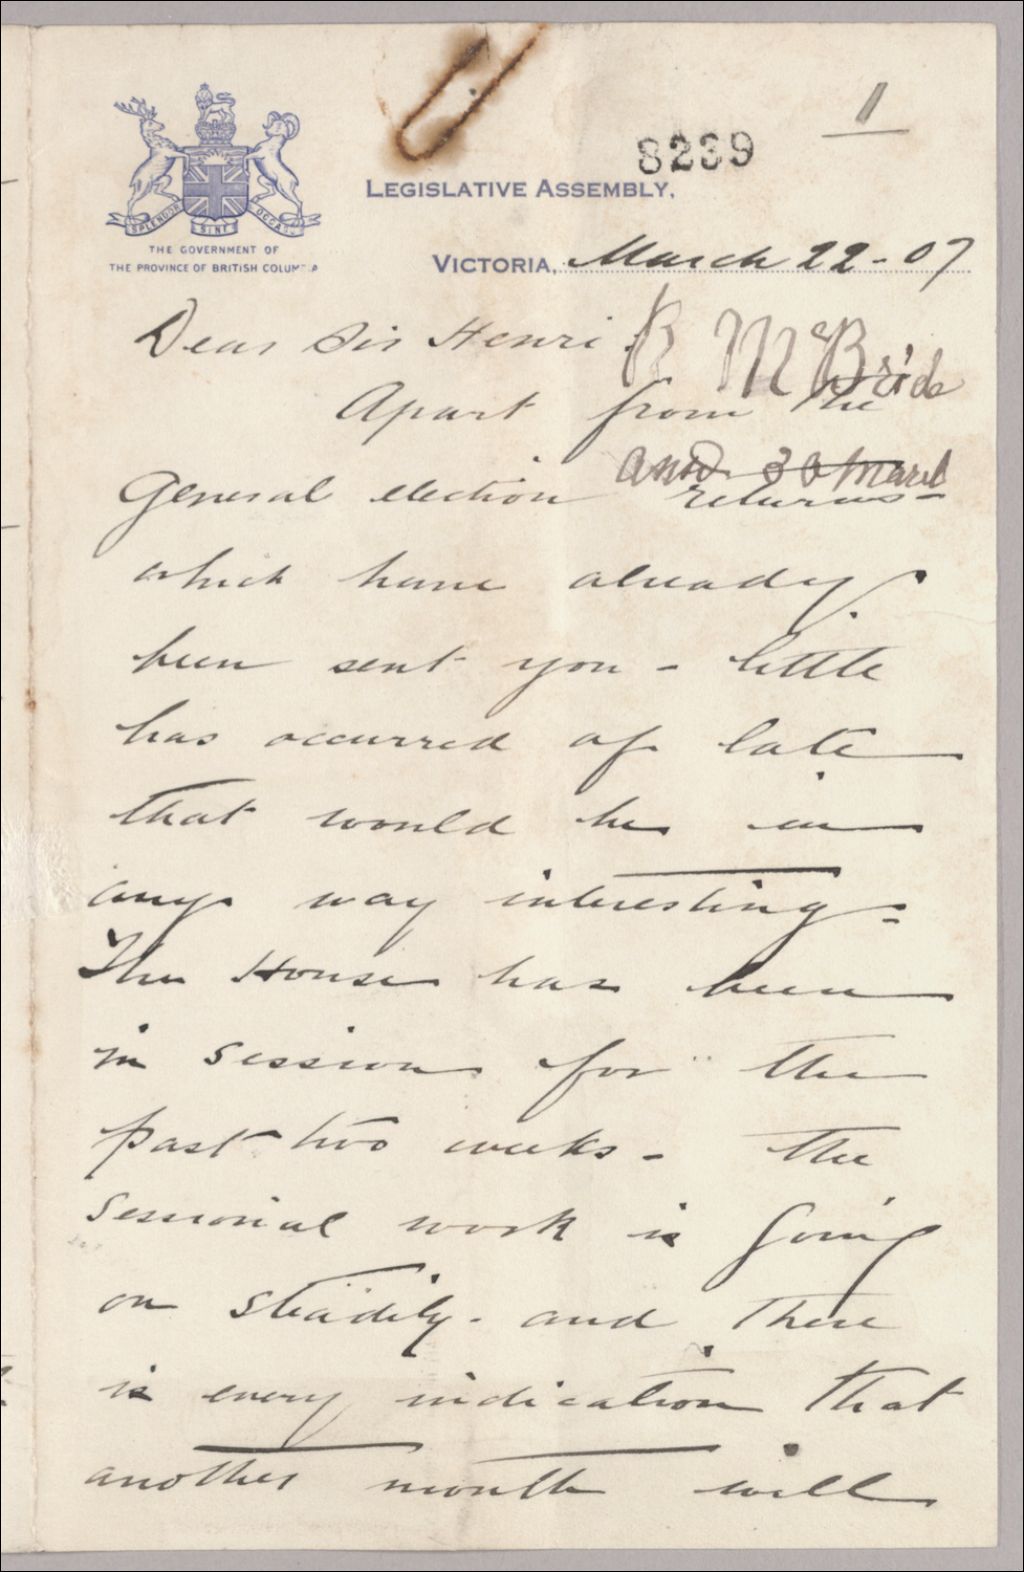 1
8239
SPLENDOR SINE OCCASU
THE GOVERNMENT OF
THE PROVINCE OF BRITISH COLUMBIA
LEGISLATIVE ASSEMBLY,
VICTORIA, March 22 - 07
Dear Sir Henri.
R McBride
Apart from the
ansd 30 March
General election returns -
which have already
been sent you - little
has occurred of late
that would be in
any way interesting -
The House has been
in session for the
past two weeks - the
sessional work is going
on steadily - and there
is every indication that
another month will